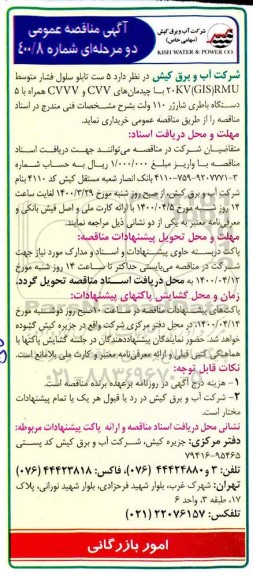 آگهی مناقصه عمومی
دو مرحله‌ای شماره ۴۰۰/۸
شرکت آب و برق کیش
(سهامی خاص)
KISH WATER & POWER CO.
شرکت آب و برق کیش در نظر دارد ۵ ست تابلو سلول فشار متوسط
۲۰KV(GIS)RMU با چیدمان‌های CVV و CVVV همراه با ۵
دستگاه باطری شارژر ۱۱۰ ولت بشرح مشخصات فنی مندرج در اسناد
مناقصه را از طریق مناقصه عمومی خریداری نماید.
مهلت و محل دریافت اسناد:
متقاضیان شرکت در مناقصه می‌توانند جهت دریافت اسناد
مناقصه با واریز مبلغ ۱/۰۰۰/۰۰۰ ریال به حساب شماره
۴۱۱۰-۷۵۹-۹۲۰۷۷۷۱-۳ بانک انصار شعبه مستقل کیش کد ۴۱۱۰ بنام
شرکت آب و برق کیش، از صبح روز شنبه مورخ ۱۴۰۰/۳/۲۹ لغایت ساعت
۱۴ روز شنبه مورخ ۱۴۰۰/۰۴/۵ با ارائه کارت ملی و اصل فیش بانکی و
معرفی‌نامه معتبر به یکی از دو نشانی ذیل مراجعه نمایند.
مهلت و محل تحویل پیشنهادات مناقصه:
پاکت دربسته حاوی پیشنهادات و اسناد و مدارک مورد نیاز جهت
شرکت در مناقصه می‌بایستی حداکثر تا ساعت ۱۴ روز شنبه مورخ
۱۴۰۰/۰۴/۱۲ به محل دریافت اسناد مناقصه تحویل گردد.
زمان و محل گشایش پاکتهای پیشنهادات:
پاکت‌های پیشنهادات مناقصه در ساعت ۱۰ صبح روز دوشنبه مورخ
۱۴۰۰/۰۴/۱۴ در محل دفتر مرکزی شرکت واقع در جزیره کیش گشوده
خواهد شد. حضور نمایندگان پیشنهاددهندگان در جلسه گشایش پاکتها با
هماهنگی کتبی قبلی و ارائه معرفی‌نامه معتبر و کارت ملی بلامانع است.
نکات قابل توجه:
۱- هزینه درج آگهی در روزنامه برعهده برنده مناقصه است.
۲- شرکت آب و برق کیش در رد یا قبول هر یک یا تمام پیشنهادات
مختار است.
نشانی محل دریافت اسناد مناقصه و ارائه پاکت پیشنهادات مربوطه:
دفتر مرکزی: جزیره کیش، شرکت آب و برق کیش کد پستی
۷۹۴۱۶-۹۵۴۶۵
تلفن: ۳ و ۴۴۴۲۴۸۸۰ (۰۷۶)، فاکس: ۴۴۴۲۳۸۱۸ (۰۷۶)
تهران: شهرک غرب، بلوار شهید فرحزادی، بلوار شهید نورانی، پلاک
۱۷، طبقه ۳، واحد ۶
تلفکس: ۲۲۰۷۶۱۵۷ (۰۲۱)
امور بازرگانی